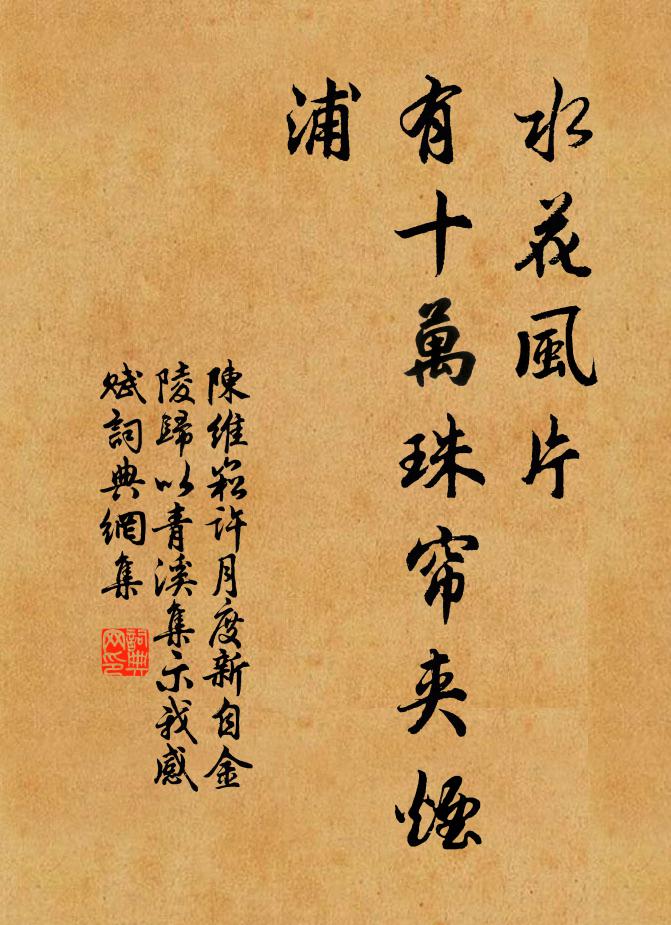 水花風片
有十萬珠帘夾煙
浦
陳維崧許月度新自金
陵歸以青溪集示我感
賦詞典網集
詞典
网印